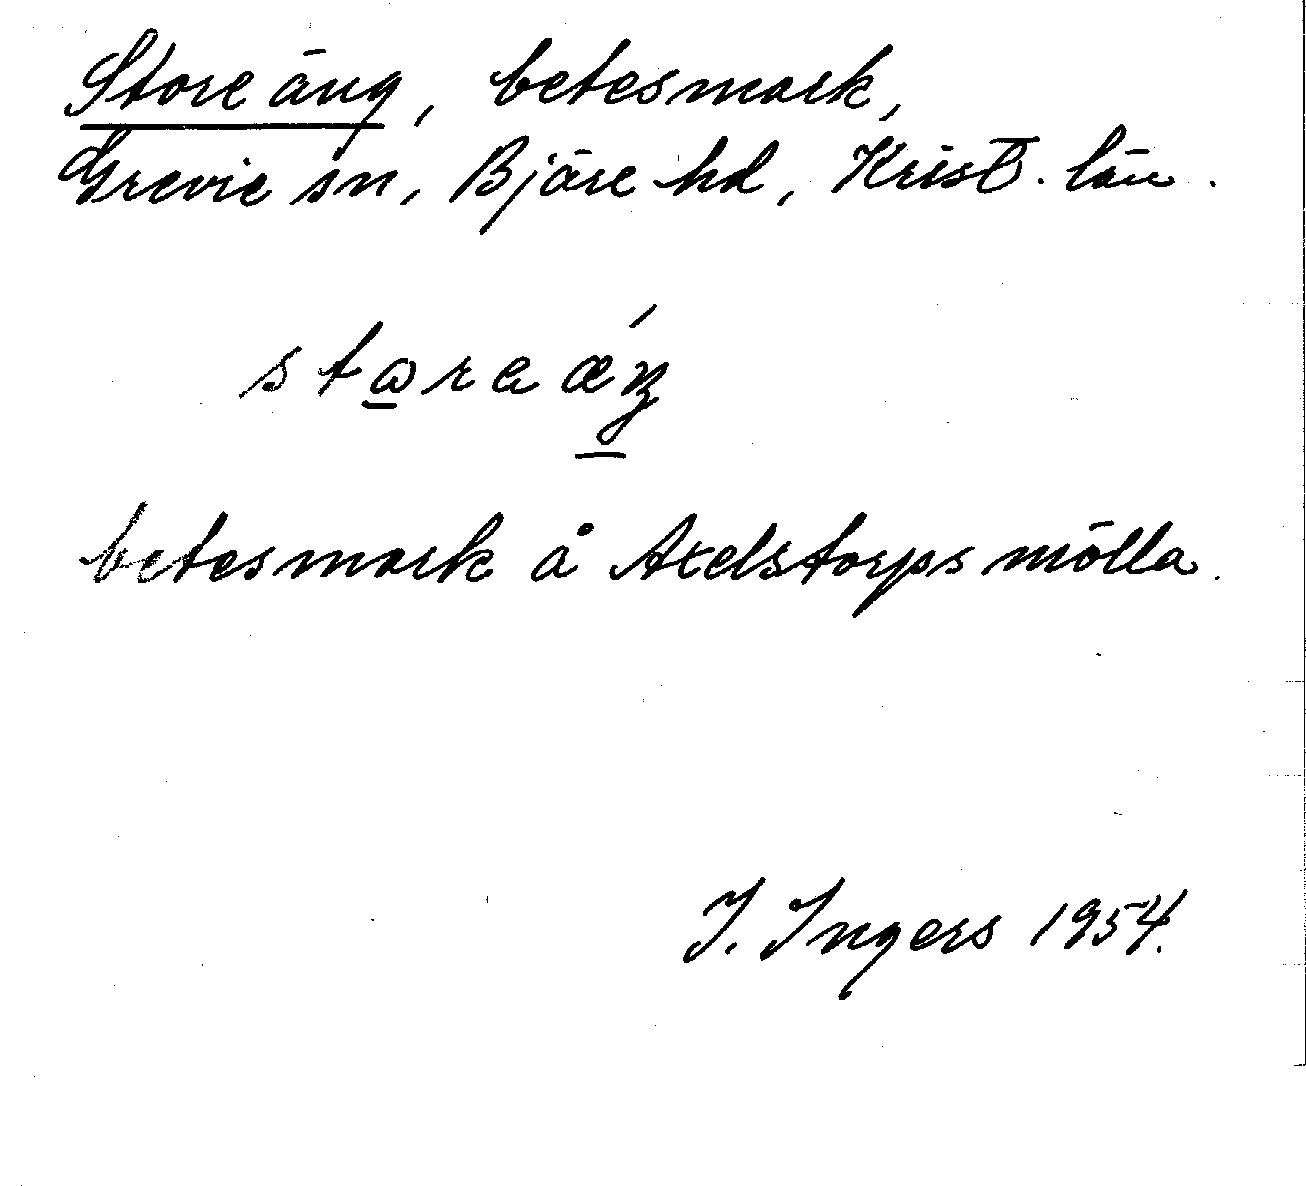 Store äng, betesmark,
Grevie sn, Bjäre hd, Krist. län.
betesmark å Axelstorps mölla.
I. Ingers 1954.